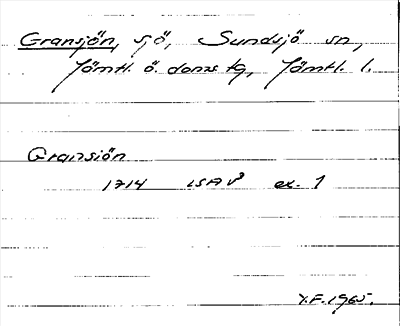 Gransjön, sjö, Sundsjö sn,
Jämtl. ö. doms tg, Jämtl. l.
Gransiön
1714 LSA V³ ex. 1
Y.F. 1965.